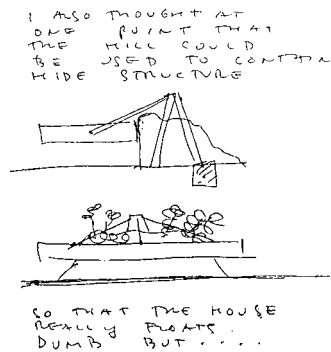 I ALSO THOUGHT AT
ONE POINT THAT
THE HILL COULD
BE USED TO CONTAIN
HIDE STRUCTURE
SO THAT THE HOUSE
REALLY FLOATS.
DUMB BUT ....